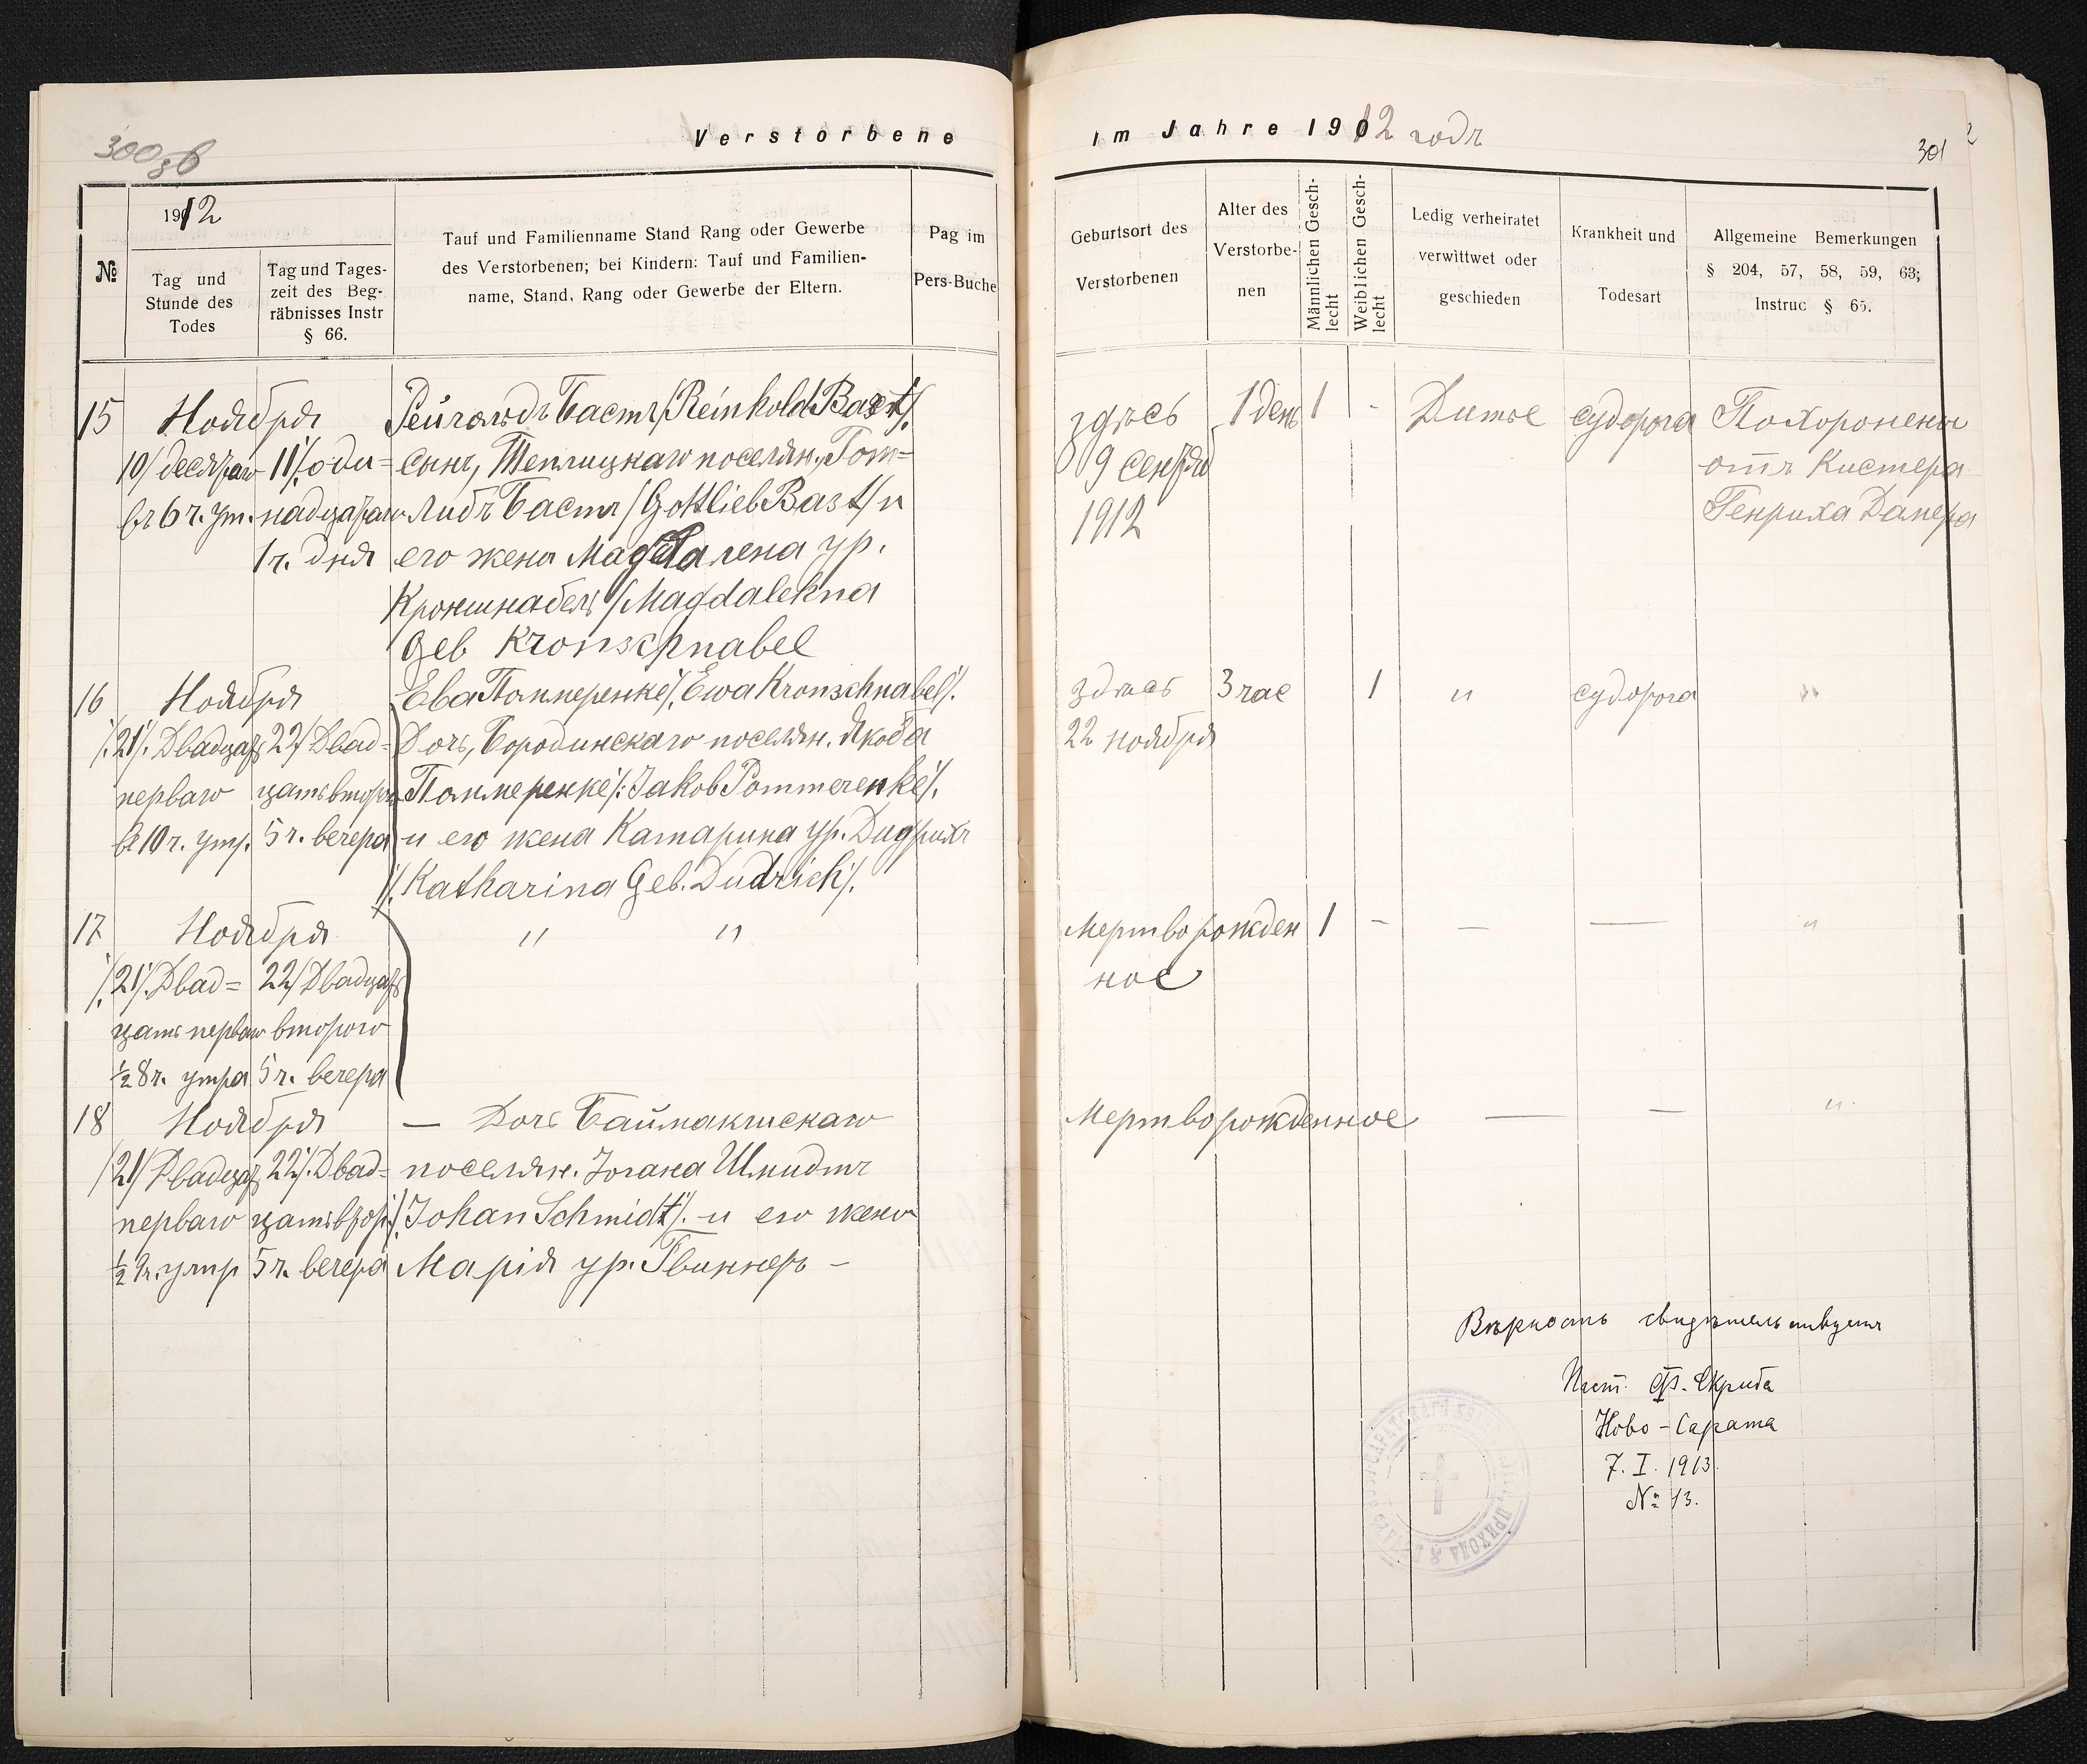 300 об
Verstorbene
1912
№
Tag und
Stunde des
Todes
Tag und Tages-
zeit des Beg-
räbnisses Instr
§ 66.
Tauf und Familienname Stand Rang oder Gewerbe
des Verstorbenen; bei Kindern: Tauf und Familien-
name, Stand, Rang oder Gewerbe der Eltern.
Pag im
Pers-Buche
15 Ноября
10/ десятаго
въ 6 ч. ут.
11/. оди=
надцатаго
1 ч. дня
Рейгольдъ Бастъ /Reinhold Bast/.
сынъ, Теплицкаго поселян., Гот=
либъ Бастъ /Gottlieb Bast/ и
его жена Магдалена ур.
Кроншнабель /Magdalekna
Geb Kronschnabel
16 Ноября
/.21/. Двадцать
перваго
въ 10 ч. утр.
22/ Двад=
цать втораго
5 ч. вечера
Ева Поммеренке /. Ewa Kronschnabel /.
Дочь, Бородинскаго поселян. Якоба
Поммеренке /: Jakob Pommerenke /.
и его жена Катарина ур. Дидрихъ
/. Katharina Geb. Dudrich /.
17 Ноября
/.21/. Двад=
цать перваго
½ 8 ч. утра
22/ Двадцать
второго
5 ч. вечера
" "
18 Ноября
/21/ Двадцать
перваго
½ 9 ч. утр
22/. Двад=
цать втор.
5 ч. вечера
— Дочь Баймаклискаго
поселян. Іогана Шмидтъ
/. Johan Schmidt /. и его жена
Марія ур. Гвиннеръ —
im Jahre 1912 годъ
301
Geburtsort des
Verstorbenen
Alter des
Verstorbe-
nen
Männlichen Gesch-
lecht
Weiblichen Gesch-
lecht
Ledig verheiratet
verwittwet oder
geschieden
Krankheit und
Todesart
Allgemeine Bemerkungen
§ 204, 57, 58, 59, 63;
Instruc § 65.
здѣсь 1 день 1 - Дитье судорога Похоронены
9 сентября отъ Кистера
1912 Генриха
здѣсь 3 час 1 " судорога "
22 ноября
Мертворожден 1 - — — "
ное
Мертворожденное — — "
Вѣрность свидѣтельствуетъ
Паст. Ф. Скриба
Ново-Сарата
7. I. 1913.
№ 13.